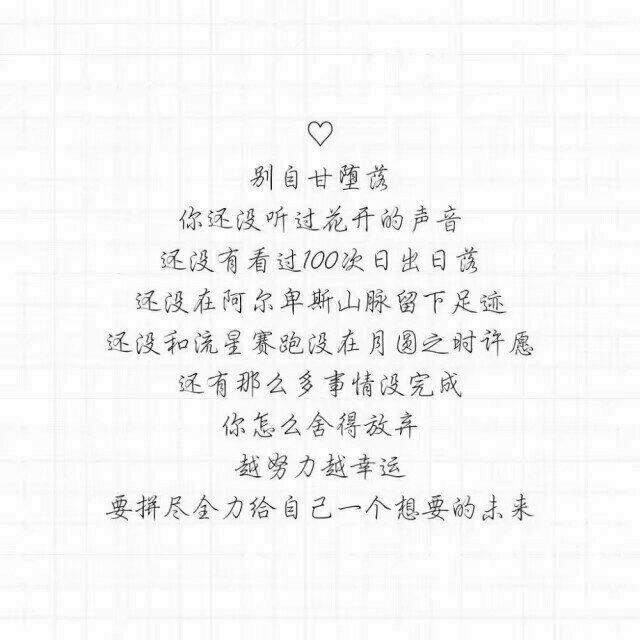 ♡
别自甘堕落
你还没听过花开的声音
还没有看过100次日出日落
还没在阿尔卑斯山脉留下足迹
还没和流星赛跑没在月圆之时许愿
还有那么多事情没完成
你怎么舍得放弃
越努力越幸运
要拼尽全力给自己一个想要的未来